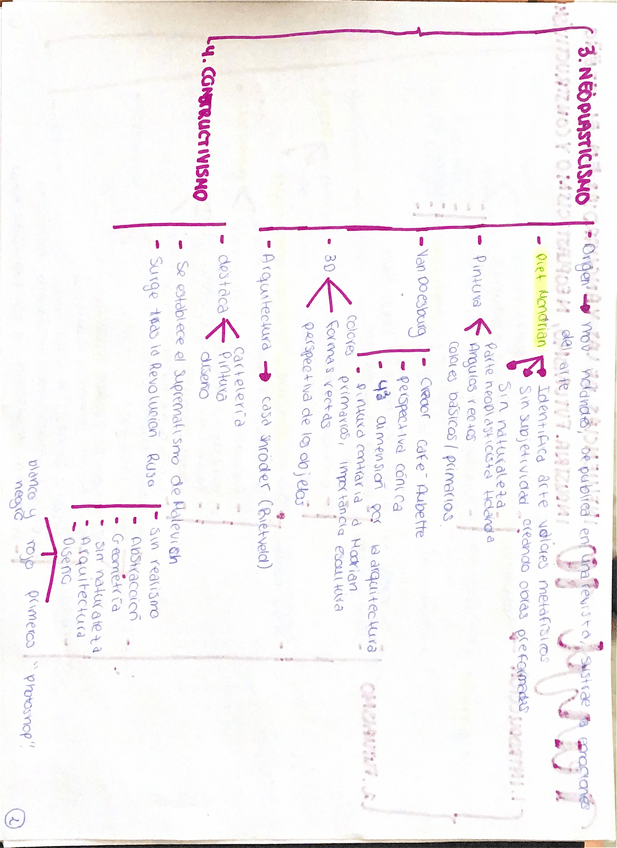 3. NEOPLASTICISMO
- Origen → mov holandés, se publica en una revista, sustrae las emociones
del arte
- Piet Mondrian
Identifica arte valores metafísicos
Sin subjetividad creando obras preformadas
Sin naturaleza
- Pintura
Parte neoplasticista Holanda
Angulos rectos
colores básicos/primarios
- Van Doesburg
- Creador Café-Aubette
- perspectiva cónica
- 4ª dimensión por la arquitectura
- pintura contraria a Modrian
- 3D
colores primarios, importancia escultura
Formas rectas
perspectiva de los objetos
- Arquitectura → casa shröder (Rietveld)
4. CONSTRUCTIVISMO
- destaca
Cartelería
Pintura
diseño
- Se establece el suprematismo de Malevich
- Surge tras la Revolución Rusa
- sin realismo
- Abstracción
- Geometría
- sin naturaleza
- Arquitectura
- Diseño
blanco y negro
rojo
primeros "photoshop".
2